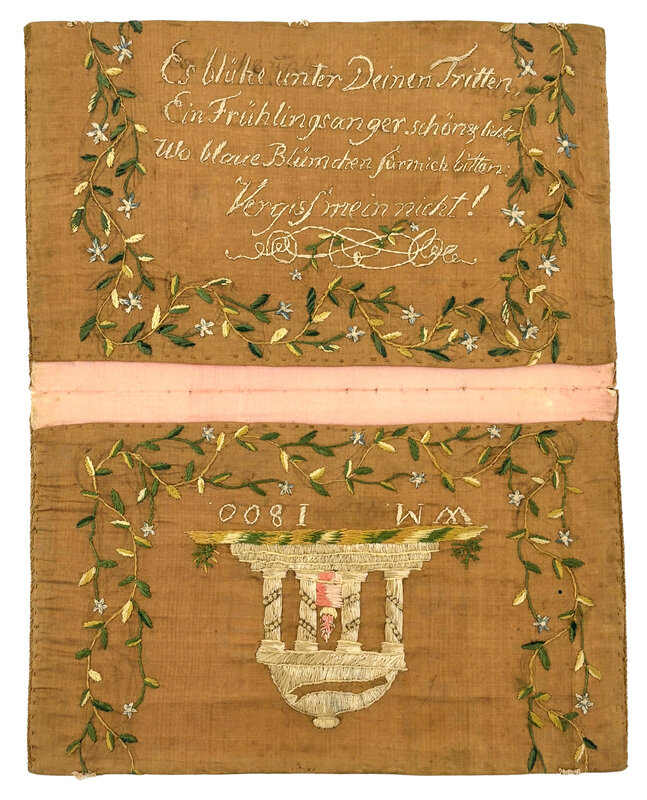 Es blühe unter Deinen Tritten,
Ein Frühlingsanger schön & licht
Wo blaue Blümchen für mich bitten:
Vergiss mein nicht!
W M 1800